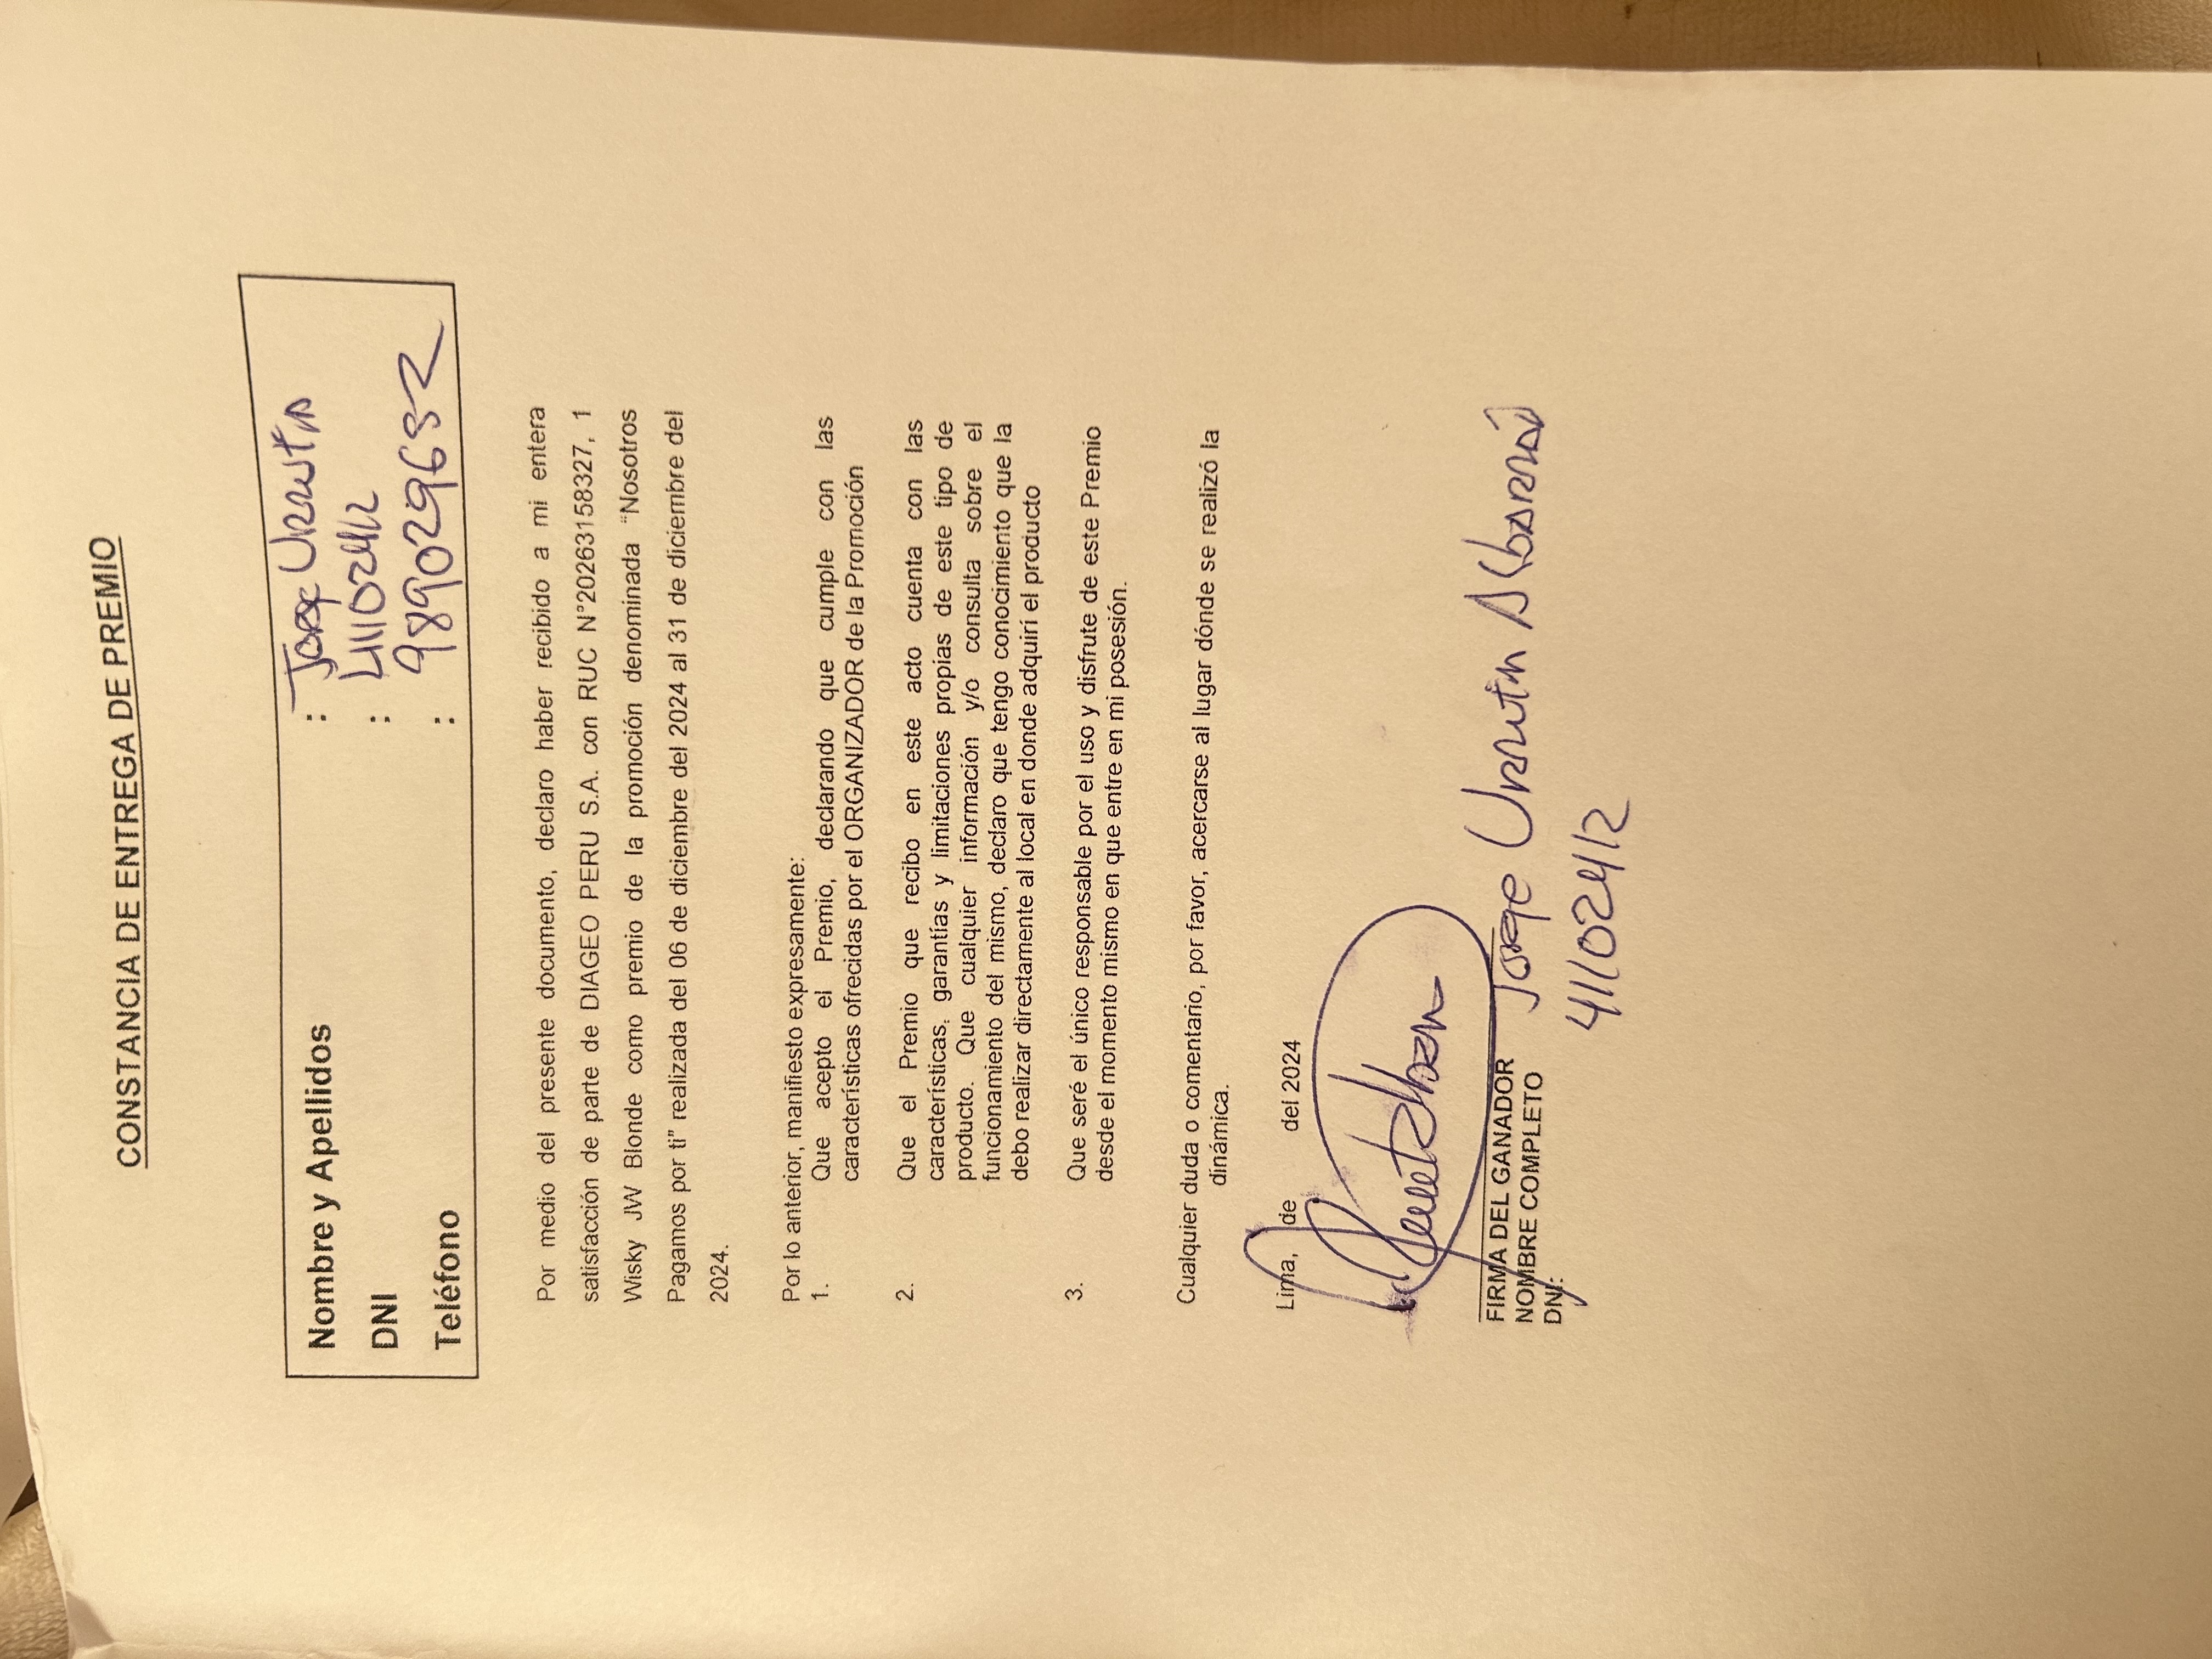 CONSTANCIA DE ENTREGA DE PREMIO
Nombre y Apellidos : Jorge Urrutia
DNI : 41102412
Teléfono : 989029652
Por medio del presente documento, declaro haber recibido a mi entera
satisfacción de parte de DIAGEO PERU S.A. con RUC N°20263158327, 1
Wisky JW Blonde como premio de la promoción denominada “Nosotros
Pagamos por ti” realizada del 06 de diciembre del 2024 al 31 de diciembre del
2024.
Por lo anterior, manifiesto expresamente:
1. Que acepto el Premio, declarando que cumple con las
características ofrecidas por el ORGANIZADOR de la Promoción
2. Que el Premio que recibo en este acto cuenta con las
características, garantías y limitaciones propias de este tipo de
producto. Que cualquier información y/o consulta sobre el
funcionamiento del mismo, declaro que tengo conocimiento que la
debo realizar directamente al local en donde adquirí el producto
3. Que seré el único responsable por el uso y disfrute de este Premio
desde el momento mismo en que entre en mi posesión.
Cualquier duda o comentario, por favor, acercarse al lugar dónde se realizó la
dinámica.
Lima, de del 2024
FIRMA DEL GANADOR
NOMBRE COMPLETO Jorge Urrutia Albarrá
DNI: 41102412